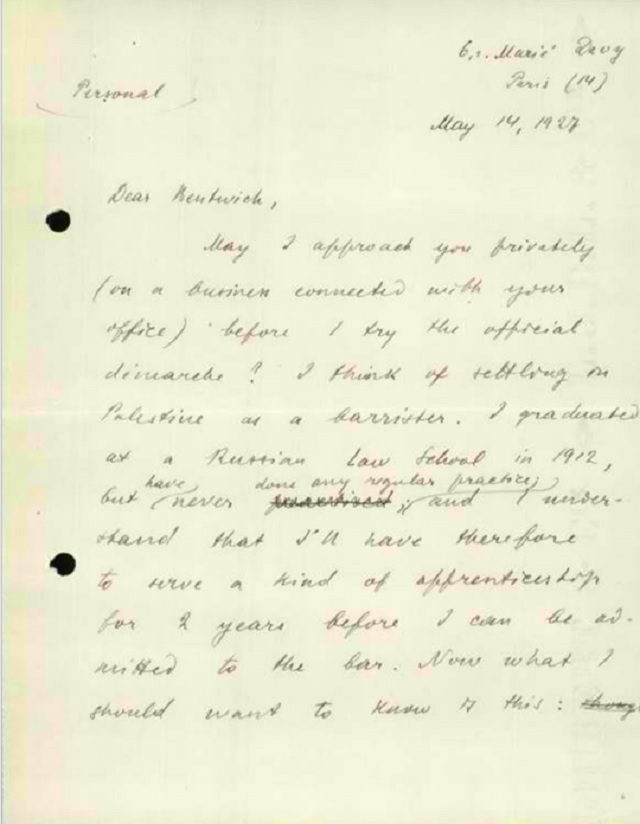 6, r. Marié Davy
Paris (14)
Personal
May 14, 1927
Dear Bentwich,
May I approach you privately
(on a business connected with your
office) before I try the official
démarche? I think of settling in
Palestine as a barrister. I graduated
at a Russian Law School in 1912,
have done any regular practice;
but never practised; and I under-
stand that I'll have therefore
to serve a kind of apprenticeship
for 2 years before I can be ad-
mitted to the bar. Now what I
should want to know is this: